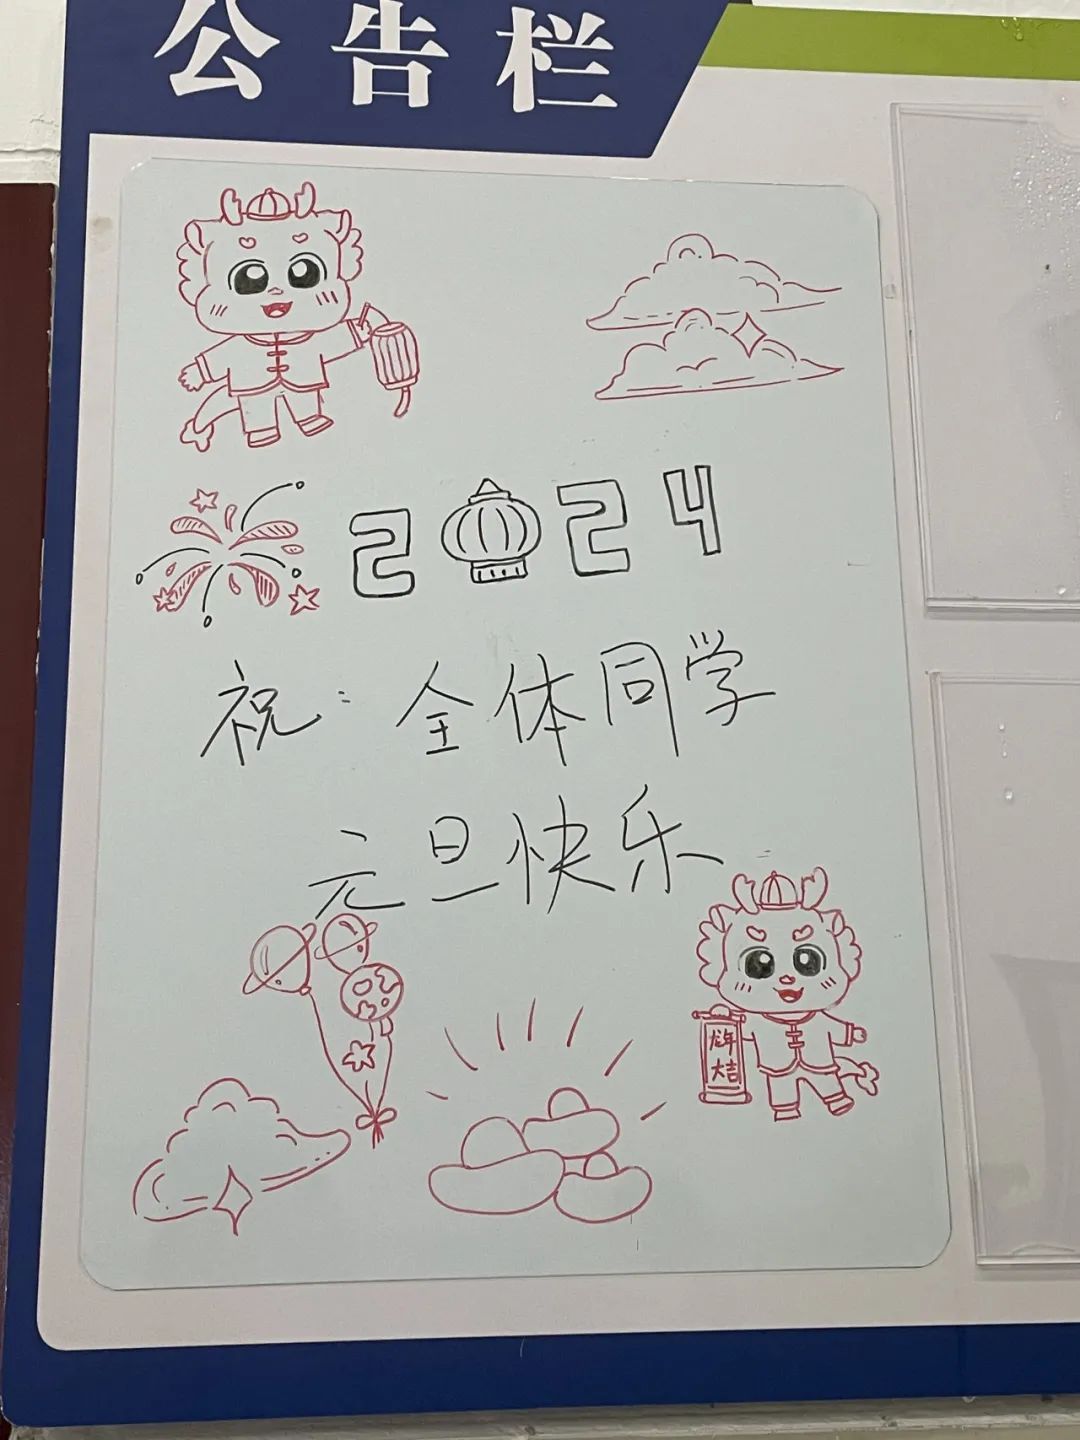 公告栏
2024
祝：全体同学
元旦快乐
龙年
大吉